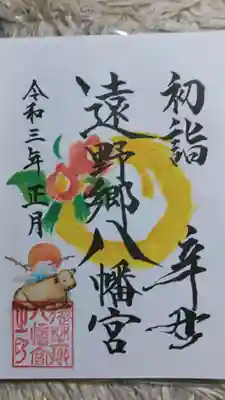 初詣 辛丑
遠野郷八幡宮
令和三年正月